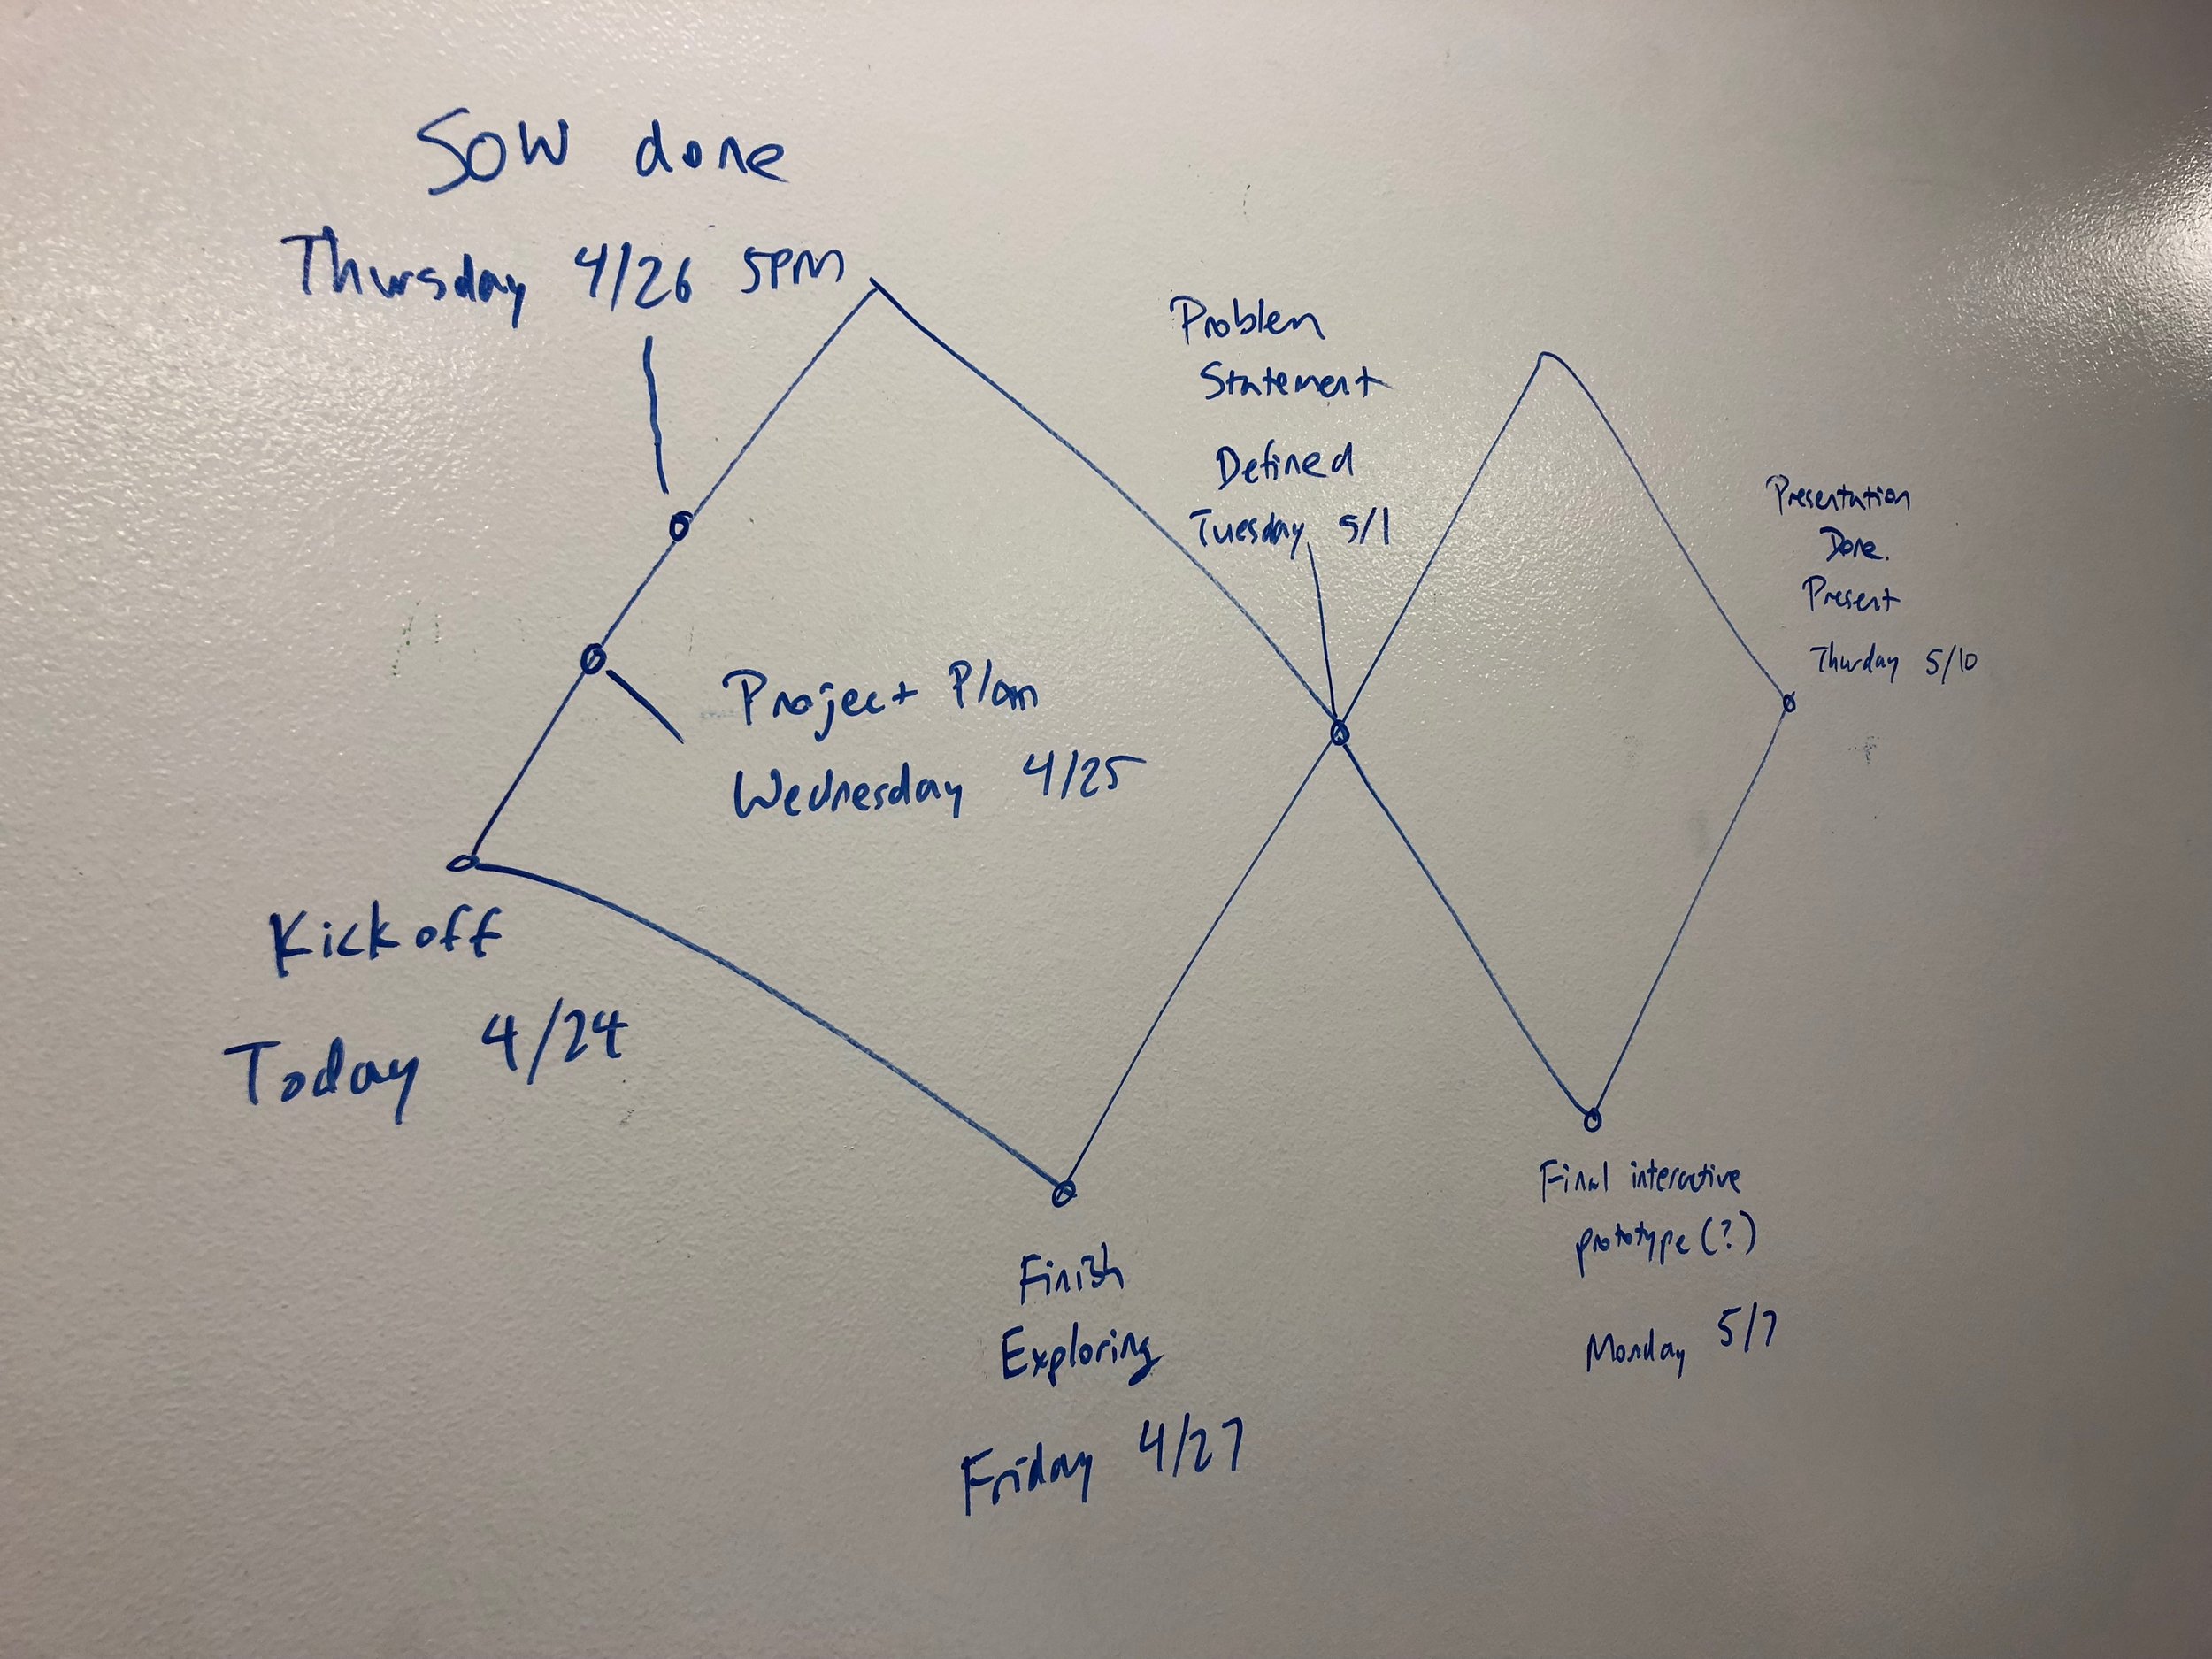 SOW done
Thursday 4/26 5PM
Project Plan
Wednesday 4/25
Kickoff
Today 4/24
Finish
Exploring
Friday 4/27
Problem
Statement
Defined
Tuesday 5/1
Final interactive
prototype (?)
Monday 5/7
Presentation
Done.
Present
Thurday 5/10